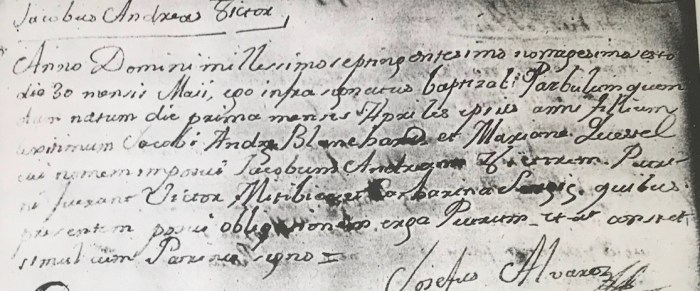 Jacobus Andrea Victor
Anno Domini millessimo septingentesimo nonagesimo sexto
die 30 mensis Maii, ego infra signatus baptizabi Parbulum quem
natum die prima mensis Aprilis ipsius anni filium
legitimum Jacobi Andrę Blanchard et Mariane
cui nomem imposui Jacobum Andream Victorem. Patri
ni fuerunt Victor et Barbarina quibus
presentem posui obligationem erga Puerum et ut constet
simul cum Patrino signo
Josefus Alvarez